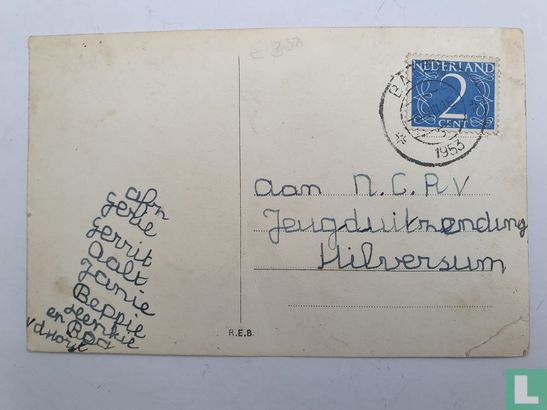 € 3.50
NEDERLAND
2
CENT
1953
aan N.C.R.V
Jeugduitzending
Hilversum
afz
Gerie
Gerrit
Aalt
Janie
Beppie
Henkie
en
R.E.B.